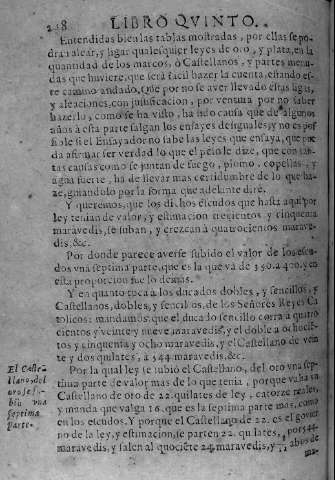 258 LIBRO QVINTO.
Entendidas bien las tablas mostradas, por ellas se po-
dra alear, y ligar qualesquier leyes de oro, y plata, en la
quantidad de los marcos, ò Castellanos, y partes menu-
das que huviere, que serà facil hazer la cuenta, estando es-
te camino andado, Que por no se aver llevado estas ligas,
y aleaciones, con justificacion, por ventura por no saber
hazerlo, como se ha visto, ha sido causa que de algunos
años à esta parte salgan los ensayes desiguales, y no es pos-
sible si el Ensayador no sabe las leyes que ensaya, que pue-
da afirmar ser verdad lo que el peso le dize, que con tan-
tas causas como se juntan de fuego, plomo, copellas, y
agua fuerte, ha de llevar mas certidumbre de lo que ha-
ze, guiandolo por la forma que adelante dire.
Y queremos, que los dichos escudos que hasta aqui por
ley tenian de valor, y estimacion trecientos y cinquenta
maravedis, se suban, y crezcan à quatrocientos marave-
dis, &c.
Por donde parece averse subido el valor de los escu-
dos vna septima parte, que es la que và de 350. a 400. y en
esta proporcion fue lo demàs.
Y en quanto toca a los ducados dobles, y sencillos, y
Castellanos, dobles, y sencillos, de los Señores Reyes Ca-
tolicos: mandamos que el ducado sencillo corra a quatro
cientos y veinte y nueve maravedis, y el doble a ochocie-
tos y cinquenta y ocho maravedis, y el Castellano de vein
te y dos quilates, a 544. maravedis, &c.
Por la qual ley se subiò el Castellano, del oro vna sep-
tima parte de valor mas de lo que tenia, porque valia vn
Castellano de oro de 22. quilates de ley, catorze reales,
y manda que valga 16. que es la septima parte mas, como
en los escudos. Y porque el Castellano de 22. es el gover
no de la ley, y estimacion, se parten 22. quilates, por 544
maravedis, y salen al quociẽte 24. maravedis, y
abos de
ma-
El Caste-
llano, del
oro se su-
biò vna
septima
parte.